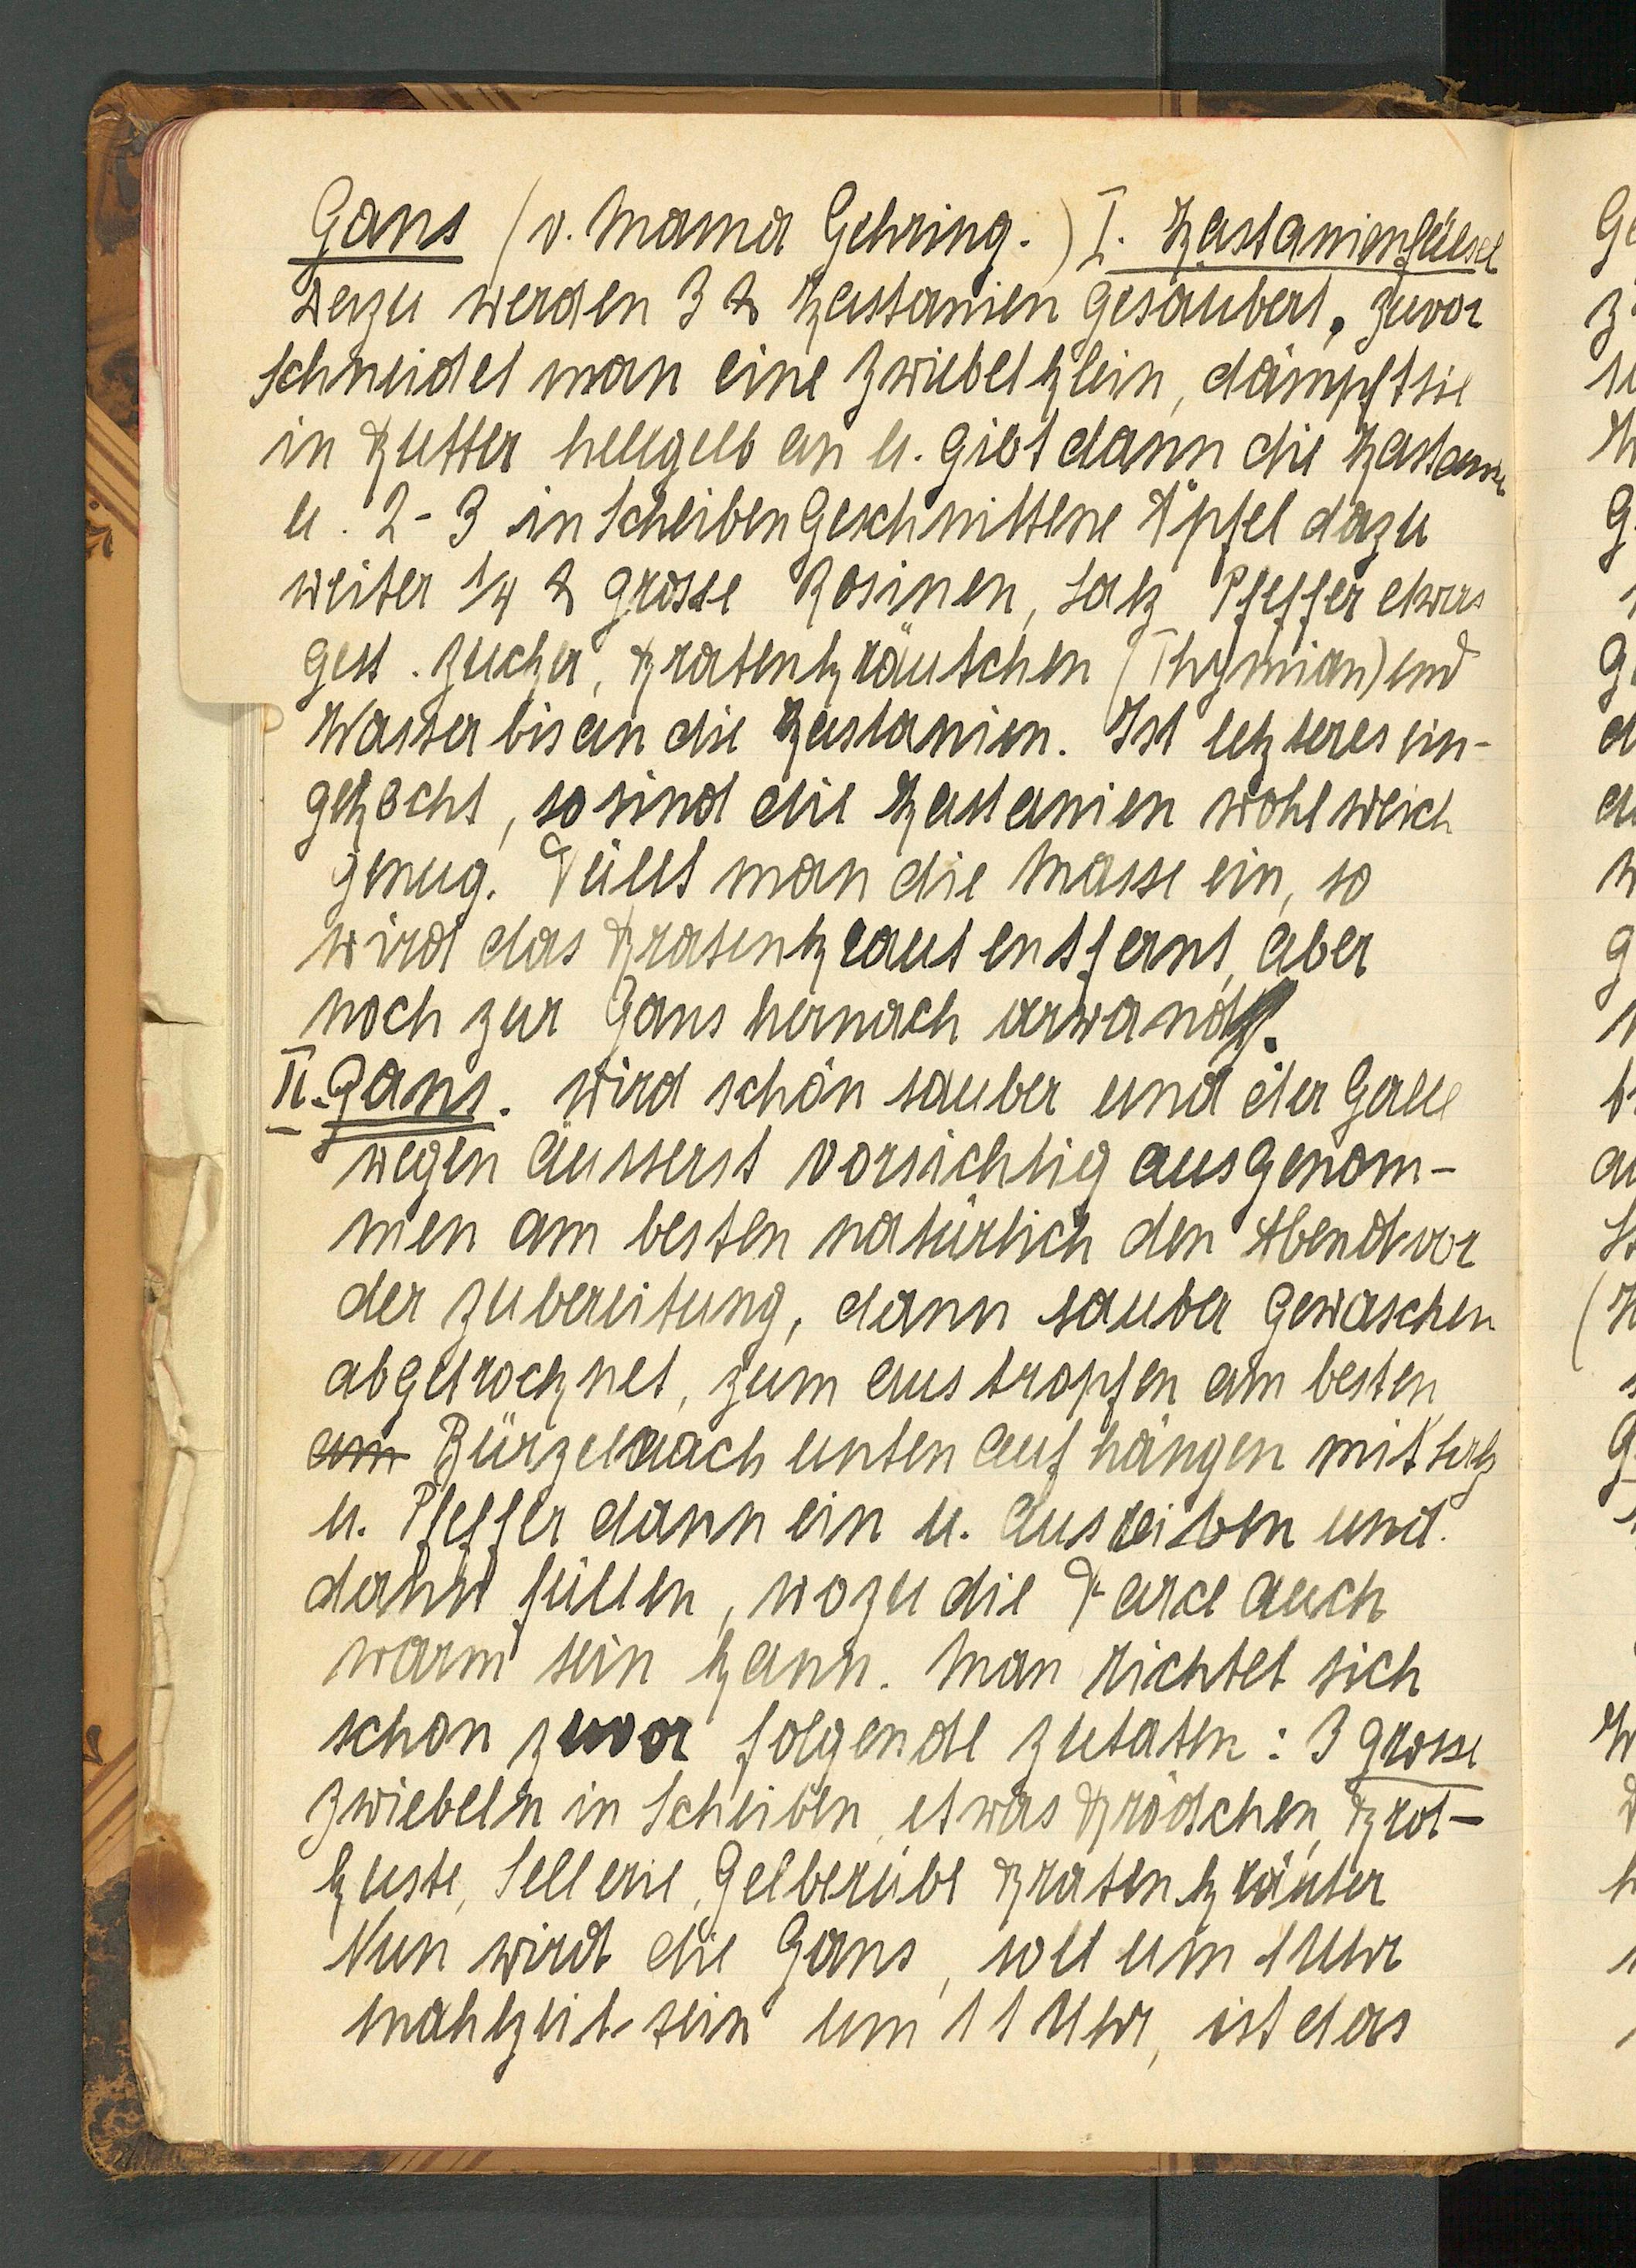 Gans (v. Mama Gehring.) I. Kastanienfüllsel
Dazu werden 3 ℔ Kastanien gesäubert, zuvor
schneidet man eine Zwiebel klein, dämpft sie
in Butter hellgelb an u. gibt dann die Kastanien
u. 2-3 in Scheiben geschnittene Äpfel dazu
weiter 1/4 ℔ grosse Rosinen, Salz Pfeffer etwas
gest. Zucker, Bratenkräutchen (Thymian) und
Wasser bis an die Kastanien. Ist letzteres ein-
gekocht, so sind die Kastanien wohl weich
genug. Füllt man die Masse ein, so
wird das Bratenkraut entfernt, aber
noch zur Gans hernach verwandt.
II. Gans. Wird schön sauber und der Galle
wegen äusserst vorsichtig ausgenom-
men am besten natürlich den Abend vor
der Zubereitung, dann sauber gewaschen
abgetrocknet, zum austropfen am besten
am Bürzel nach unten aufhängen mit Salz
u. Pfeffer dann ein u. ausreiben und
dann füllen, wozu die Farce auch
warm sein kann. Man richtet sich
schon zuvor folgende Zutaten: 3 grosse
Zwiebeln in Scheiben, etwas Brödchen, Brot-
kuste, Sellerie, Gelberübe Bratenkräuter
Nun wird die Gans, soll um 1 Uhr
Mahlzeit sein um 11 Uhr, ist das